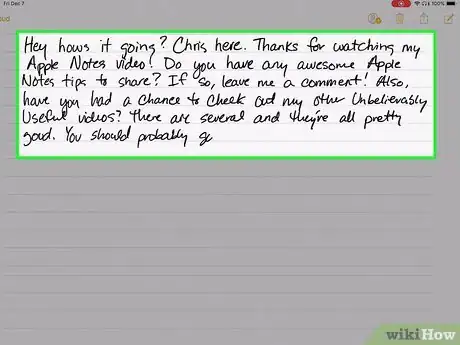 Fri Dec 7
100%
oud
Hey hows it going? Chris here. Thanks for watching my
Apple Notes video! Do you have any awesome Apple
Notes tips to share? If so, leave me a comment! Also,
have you had a chance to Check out my other Unbelievably
Useful videos? There are several and they're all pretty
good. You should probably go
wikiHow